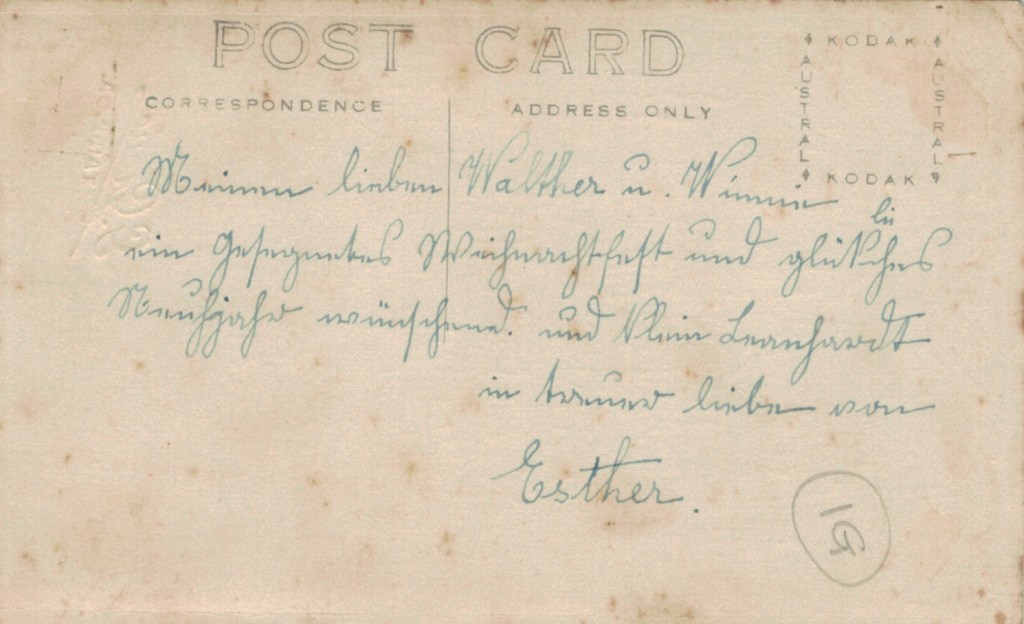 POST CARD
CORRESPONDENCE
ADDRESS ONLY
KODAK
AUSTRAL
AUSTRAL
KODAK
Meinen lieben Walther u. Winnie
ein Gesegnetes Weihnachtsfest und glükliches
Neuhjahr wünschend. und klein Leanhardt
in treuer liebe von
Esther.